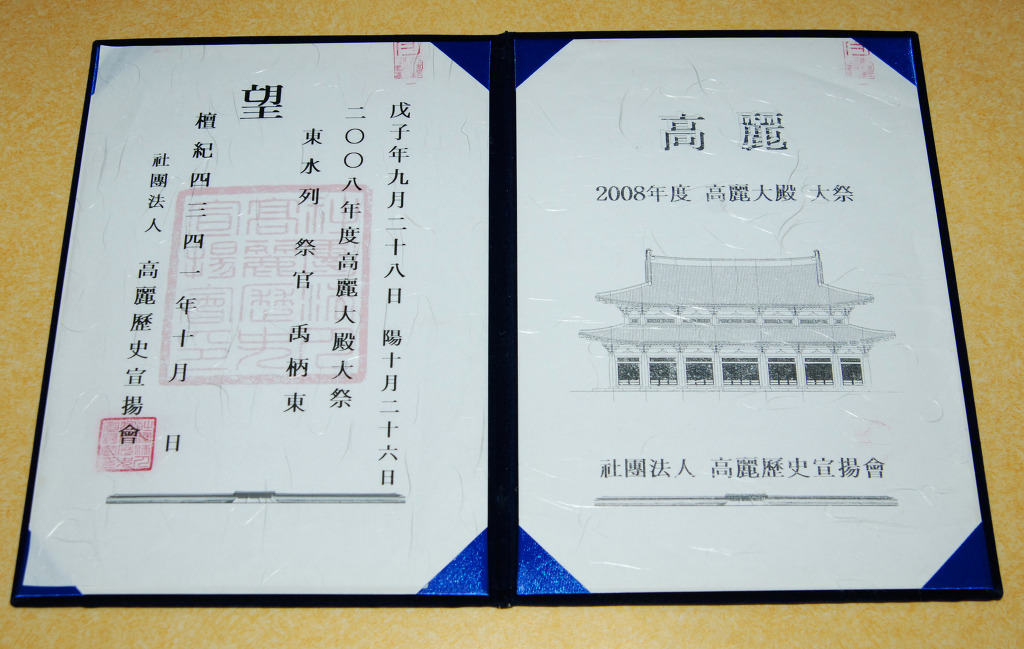 戊子年九月二十八日 陽十月二十六日
二〇〇八年度高麗大殿大祭
東水列 祭官 禹柄東
望
檀紀四三四一年十月 日
社團法人 高麗歷史宣揚會
高麗
2008年度 高麗大殿 大祭
社團法人 高麗歷史宣揚會